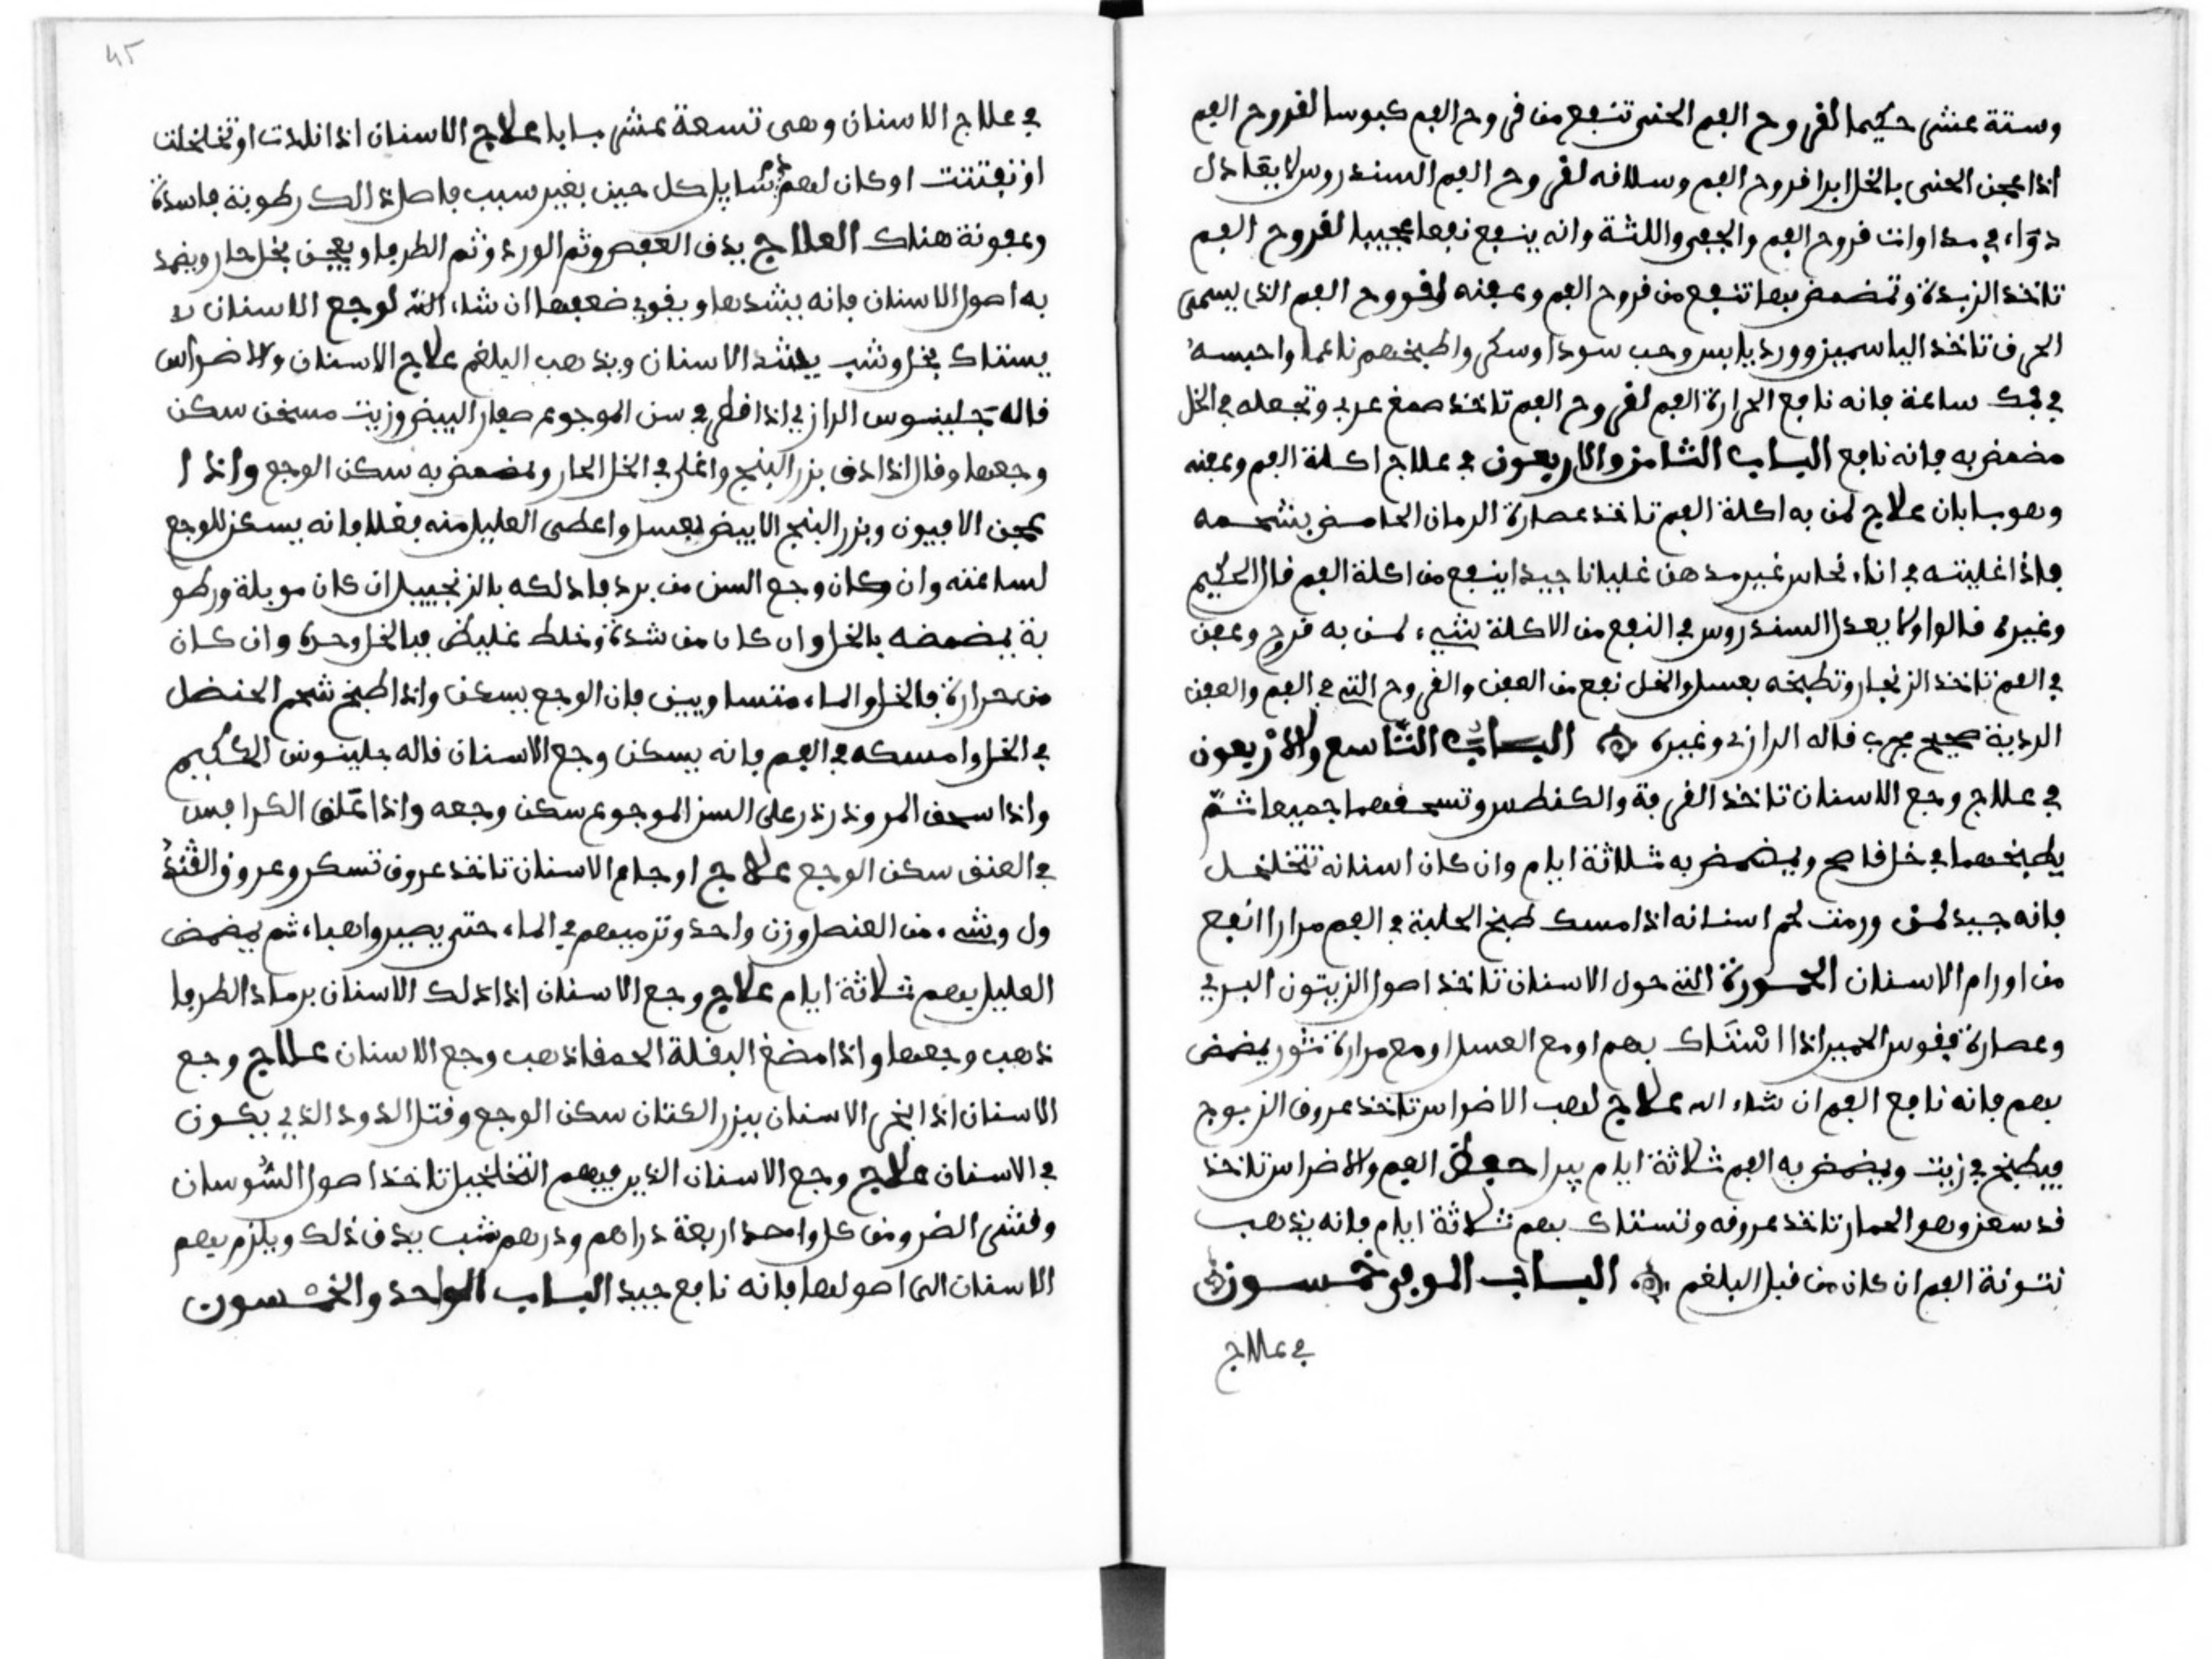 وستة عشى حكيما لقروح الفم الحنى تنفع من قروح الفم كبوسا لقروح الفم
اذا عجن الحنى بالخل ابرا قروح الفم وسلافه لقروح الفم السندروس لا يقادل
دوَاء في مداوات قروح الفم والجفر واللثة وانه ينفع نفعا عجيبا لقروح الفم
تاخذ الزبدة وتمضمض بها تنفع من قروح الفم وعفنه لقروح الفم الذي يسمى
الحرق تاخذ الياسمين وورد يابس وحب سودا وسكر واطبخهم ناعما واحبسه
في فمك ساعة فانه نافع الحرارة الفم لقروح الفم تاخذ صمغ عربي وتجعله في الخل
مضمض به فانه نافع الباب الثامن والاربعون في علاج اكلة الفم وعفنه
وهو بابان علاج لمن به اكلة الفم تاخذ عصارة الرمان الحامض بشحمه
فاذا غليته في اناء نحاس غير مدهن غليانا جيدا ينفع من اكلة الفم قال الحكيم
وغيره قالوا ولا يعدل السندروس في النفع من الاكلة شيء لمن به قرح وعفن
في الفم تاخذ الزنجار وتطبخه بعسل والخل نفع من العفن والقروح التي في الفم والعفن
الردية صحيح مجرب قاله الرازي وغيره الباب التاسع والاربعون
في علاج وجع الاسنان تاخذ القرفة والكنطس وتسحقهما جميعا ثمّ
يطبخهما في خل قاصح ويمضمض به ثلاثة ايام وان كان اسنانه تتخلخل
فانه جيد لمن ورمت لحم اسنانه اذا مسك طبخ الحلبة في الفم مرارا انفع
من اورام الاسنان التي حول الاسنان تاخذ اصول الزيتون البري
وعصارة فقوس الحمير اذا اشتاك بهم او مع العسل او مع مرارة ثور يمضمض
بهم فانه نافع الفم ان شاء الله علاج لعب الاضراس تاخذ عروق الزبوج
فيطبخ في زيت ويمضمض به الفم ثلاثة ايام يبرا حفظ الفم والاضراس تاخذ
قد سعز وهو الحمار تاخذ عروقه وتستاك بهم ثلاثة ايام فانه يذهب
نتونة الفم ان كان من قبل البلغم الباب الموفي خمسون
في علاج
45
في علاج الاسنان وهي تسعة عشى بابا علاج الاسنان اذا تلدت او تخلخلت
او تفتتت او كان لهم دم سايل كل حين بغير سبب فاصل ذالك رطوبة فاسدة
وعفونة هناك العلاج يدق العفص وثم الورد وثم الطرفا ويعجن بخل حار ويضمد
به اصول الاسنان فانه يشدها ويقوي ضعفها ان شاء الله لوجع الاسنان لا
يستاك بخل وشب يشد الاسنان ويذهب البلغم علاج الاسنان والاضراس
قاله جلينوس الرازي اذا قطر في سن الموجوع صفار البيض وزيت مسخن سكن
وجعها وقال اذا دق بزر البنج واغلي في الخل الحار ومضمض به سكن الوجع واذا ا
عجن الافيون وبزر البنج الابيض بعسل واعطى العليل منه بفلا فانه يسكن للوجع
لساعته وان وكان وجع السن من برد فادلكه بالزنجبيل ان كان موبلة ورطو
بة يمضمضه بالخل وان كان من شدة وخلط غليظ فبالخل وحده وان كان
من حرارة فالخل والماء متساويين فان الوجع يسكن واذا طبخ شحم الحنضل
في الخل وامسكه في الفم فانه يسكن وجع الاسنان قاله جلينوس الحكيم
واذا سحق المر وذرذر على السن الموجوع سكن وجعه واذا علق الكرافس
في العنق سكن الوجع علاج اوجاع الاسنان تاخذ عروق تسكر وعروق القند
ول وشيء من العنصل وزن واحد وترميهم في الماء حتى يصير واهباء ثم يمضمض
العليل بهم ثلاثة ايام علاج وجع الاسنان اذا ادلك الاسنان برماد الطرفا
ذهب وجعها واذا مضغ البقلة الحمقا ذهب وجع الاسنان علاج وجع
الاسنان اذا بخر الاسنان ببزر الكتان سكن الوجع وقتل الدود الذي يكون
في الاسنان علاج وجع الاسنان الذي فيهم التخلخيل تاخذ اصول السوسان
وقشى الضرو من كل واحد اربعة دراهم ودرهم شب يدق ذلك ويلزم بهم
الاسنان الى اصولها فانه نافع جيد الباب الواحد والخمسون